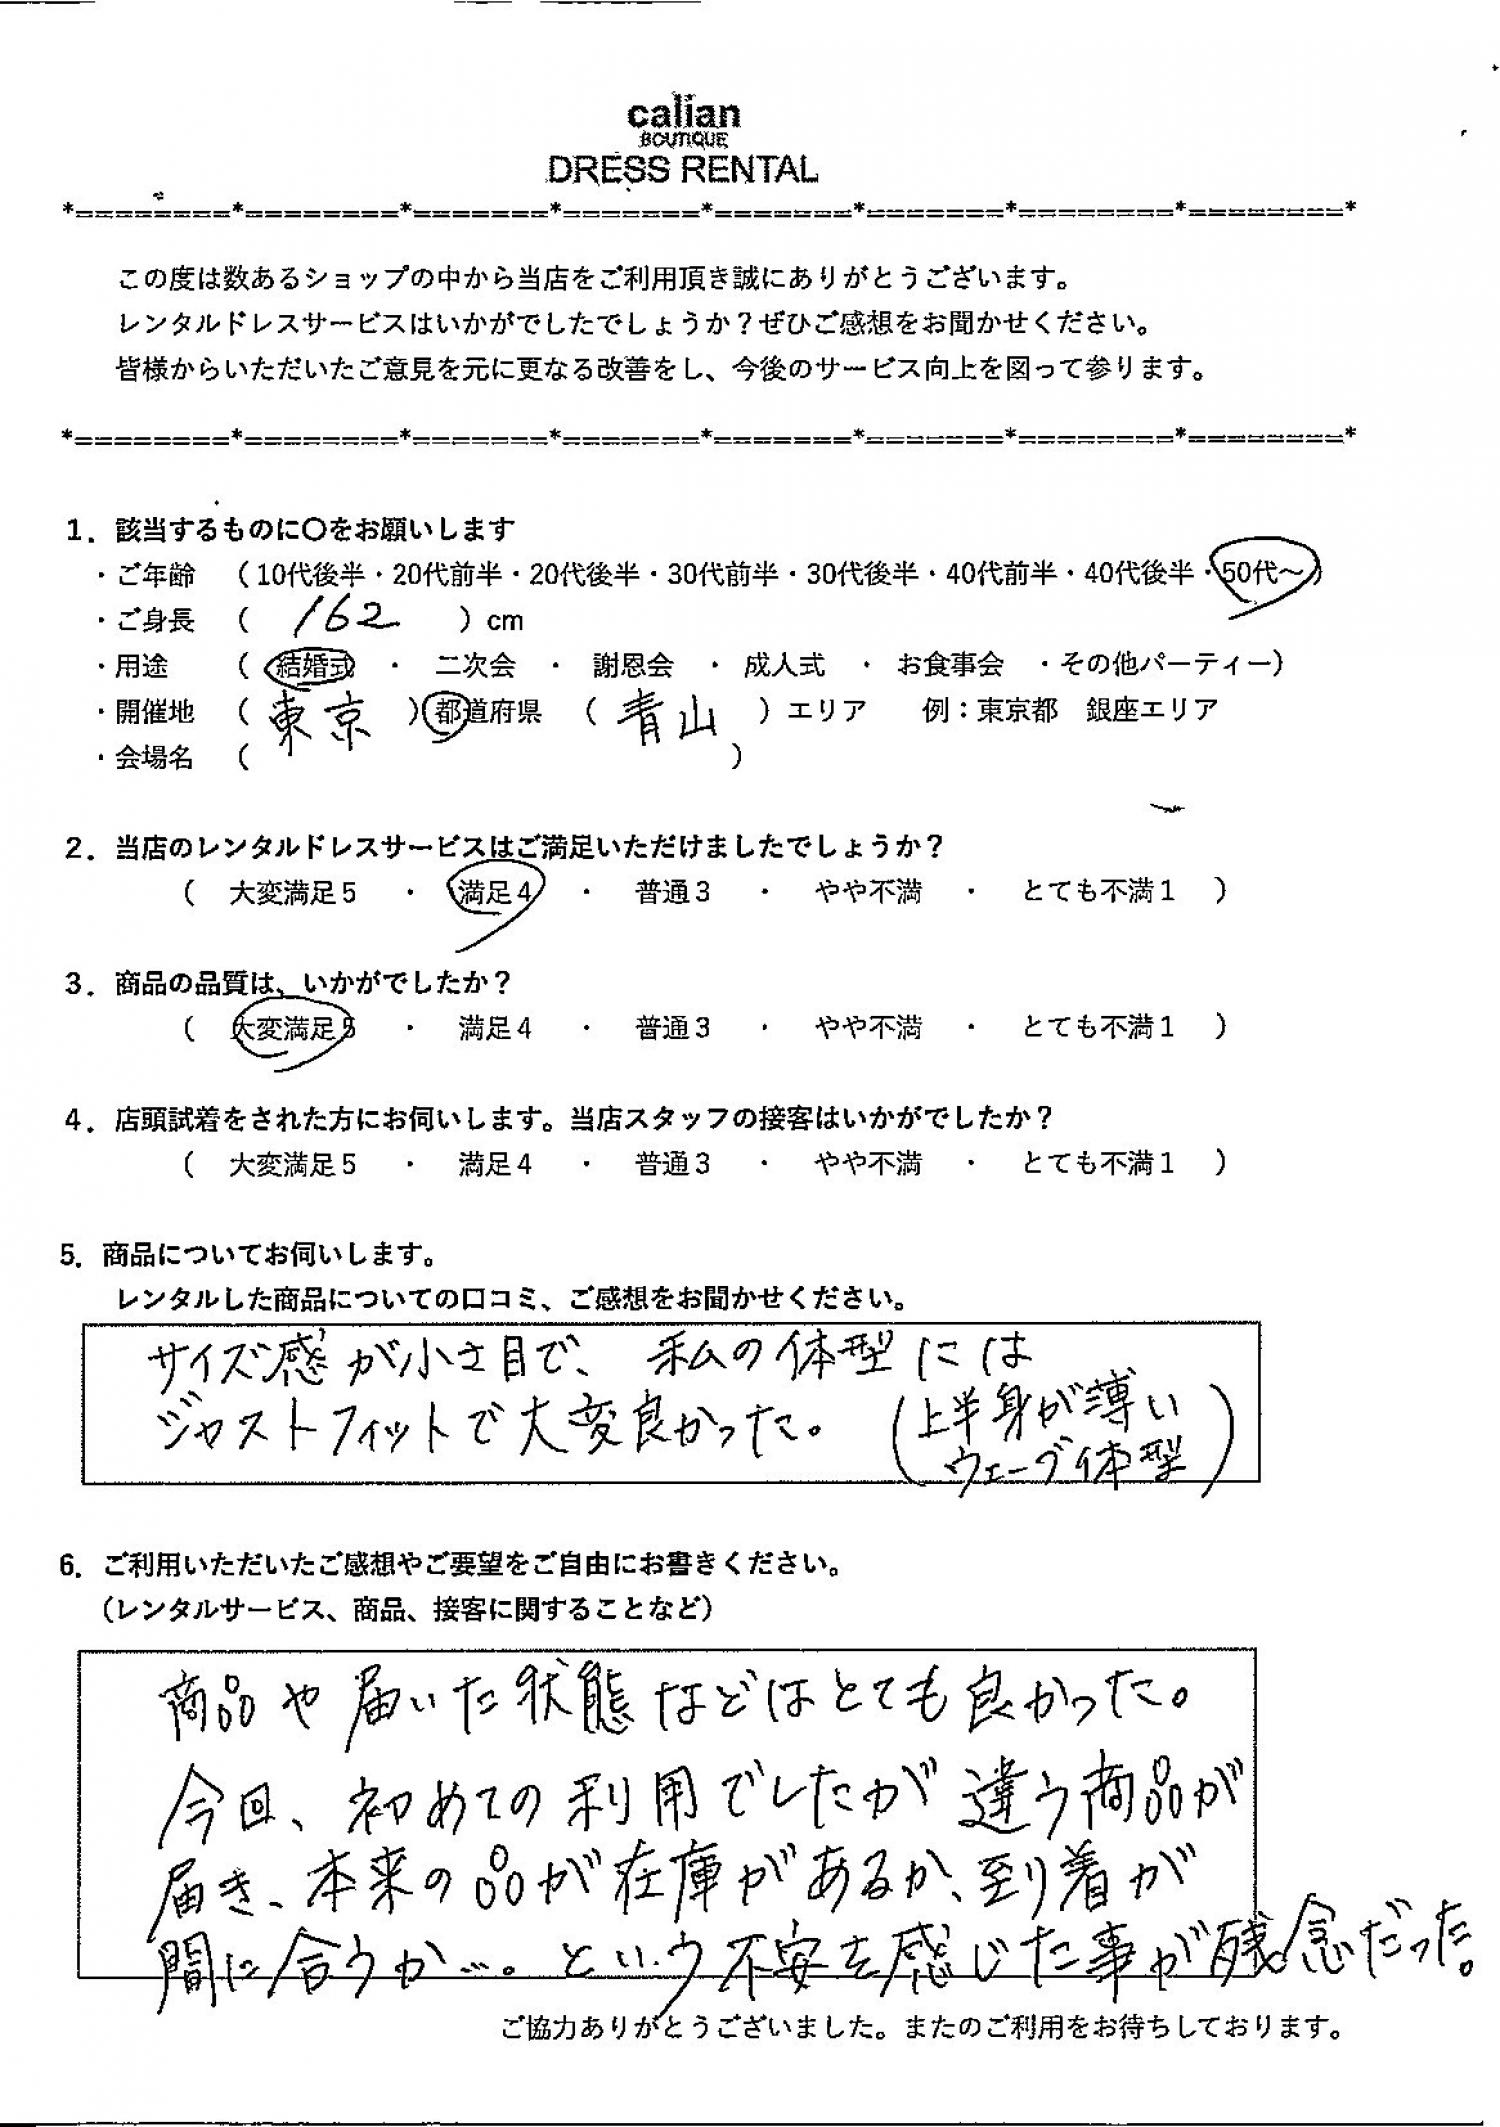 calian
BOUTIQUE
DRESS RENTAL
*========*========*=======*=======*=======*=======*========*========*
この度は数あるショップの中から当店をご利用頂き誠にありがとうございます。
レンタルドレスサービスはいかがでしたでしょうか？ぜひご感想をお聞かせください。
皆様からいただいたご意見を元に更なる改善をし、今後のサービス向上を図って参ります。
*========*========*=======*=======*=======*=======*========*========*
1．該当するものに〇をお願いします
・ご年齢 （10代後半・20代前半・20代後半・30代前半・30代後半・40代前半・40代後半・50代～）
・ご身長 （ 162 ）cm
・用途 （ 結婚式 ・ 二次会 ・ 謝恩会 ・ 成人式 ・ お食事会 ・その他パーティー）
・開催地 （ 東京 ）都道府県 （ 青山 ）エリア 例：東京都 銀座エリア
・会場名 （ ）
2．当店のレンタルドレスサービスはご満足いただけましたでしょうか？
（ 大変満足5 ・ 満足4 ・ 普通3 ・ やや不満 ・ とても不満1 ）
3．商品の品質は、いかがでしたか？
（ 大変満足5 ・ 満足4 ・ 普通3 ・ やや不満 ・ とても不満1 ）
4．店頭試着をされた方にお伺いします。当店スタッフの接客はいかがでしたか？
（ 大変満足5 ・ 満足4 ・ 普通3 ・ やや不満 ・ とても不満1 ）
5．商品についてお伺いします。
レンタルした商品についての口コミ、ご感想をお聞かせください。
サイズ感が小さ目で、私の体型には
ジャストフィットで大変良かった。（上半身が薄い
ウェーブ体型）
6．ご利用いただいたご感想やご要望をご自由にお書きください。
（レンタルサービス、商品、接客に関することなど）
商品や届いた状態などはとても良かった。
今回、初めての利用でしたが違う商品が
届き、本来の品が在庫があるか、到着が
間に合うか…。という不安を感じた事が残念だった。
ご協力ありがとうございました。またのご利用をお待ちしております。